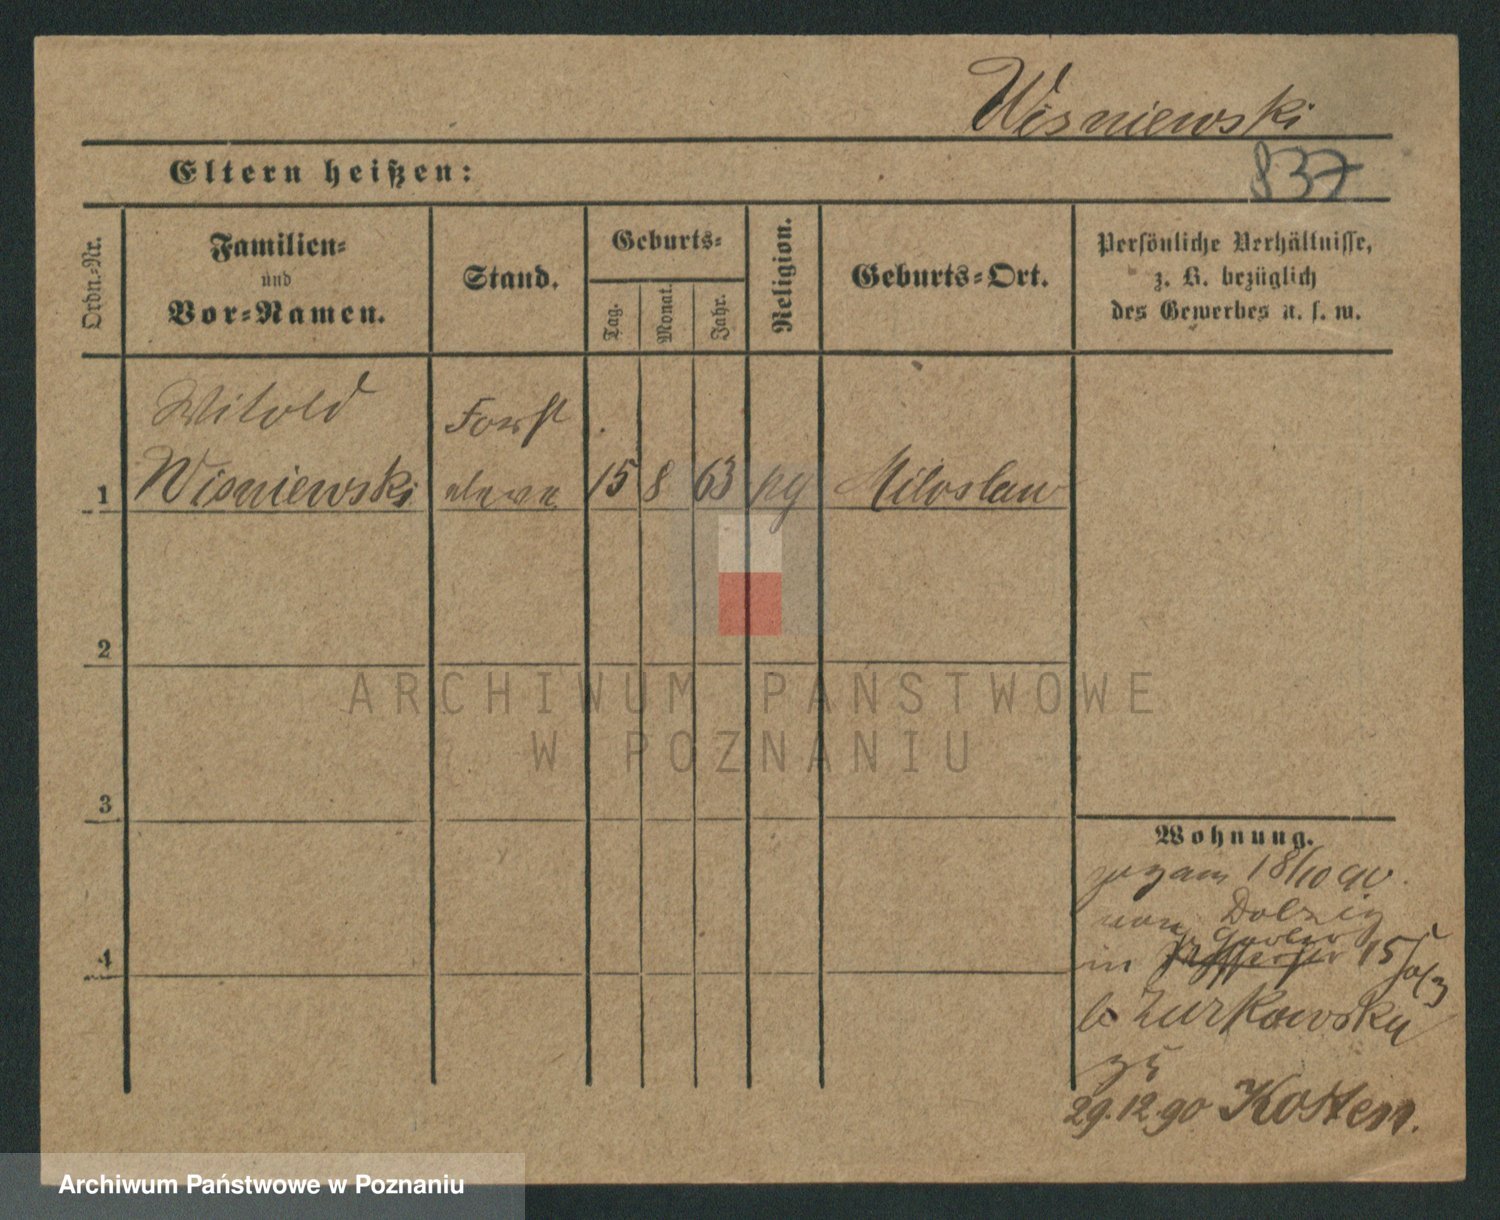 Wisniewski
Eltern heißen:
837
Ordn.-Nr.
Familien-
und
Vor-Namen.
Stand.
Geburts-
Tag.
Monat.
Jahr.
Religion.
Geburts-Ort.
Persönliche Verhältnisse,
z. B. bezüglich
des Gewerbes u. s. w.
Witold
Forst
1 Wisniewski 15 8 63 Miloslaw
2
3
4
Wohnung.
18/10 90.
von Dolzig
in 15
b Zurkowski
29.12.90 Kosten.
ARCHIWUM PAŃSTWOWE
W POZNANIU
Archiwum Państwowe w Poznaniu